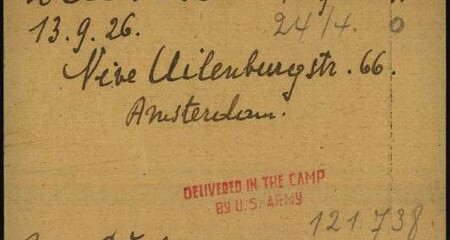 13.9.26. 24/4.
Nive Uilenburgstr. 66.
Amsterdam.
DELIVERED IN THE CAMP
BY U.S. ARMY
121.738.